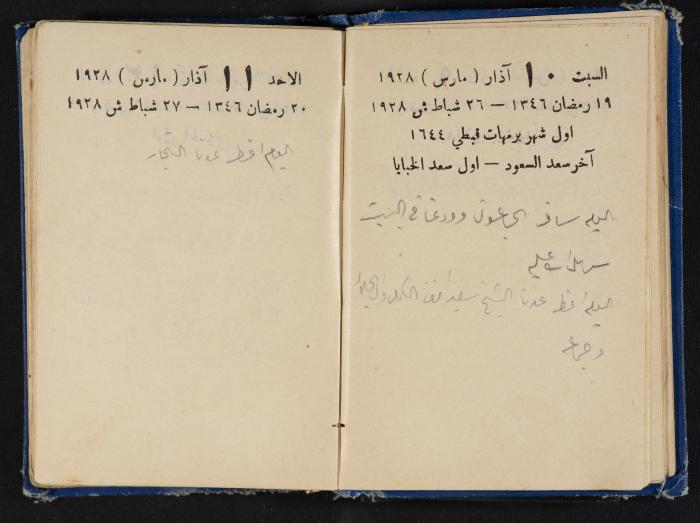 السبت ١٠ آذار ( مارس ) ١٩٢٨
١٩ رمضان ١٣٤٦ — ٢٦ شباط ش ١٩٢٨
اول شهر برمهات قبطي ١٦٤٤
آخر سعد السعود — اول سعد الخبايا
اليوم سافر وودعنا في البيت
اليوم افطر عندنا الشيخ سعيد
وجماعه
الاحد ١١ آذار ( مارس ) ١٩٢٨
٢٠ رمضان ١٣٤٦ — ٢٧ شباط ش ١٩٢٨
اليوم افطر عندنا النجار